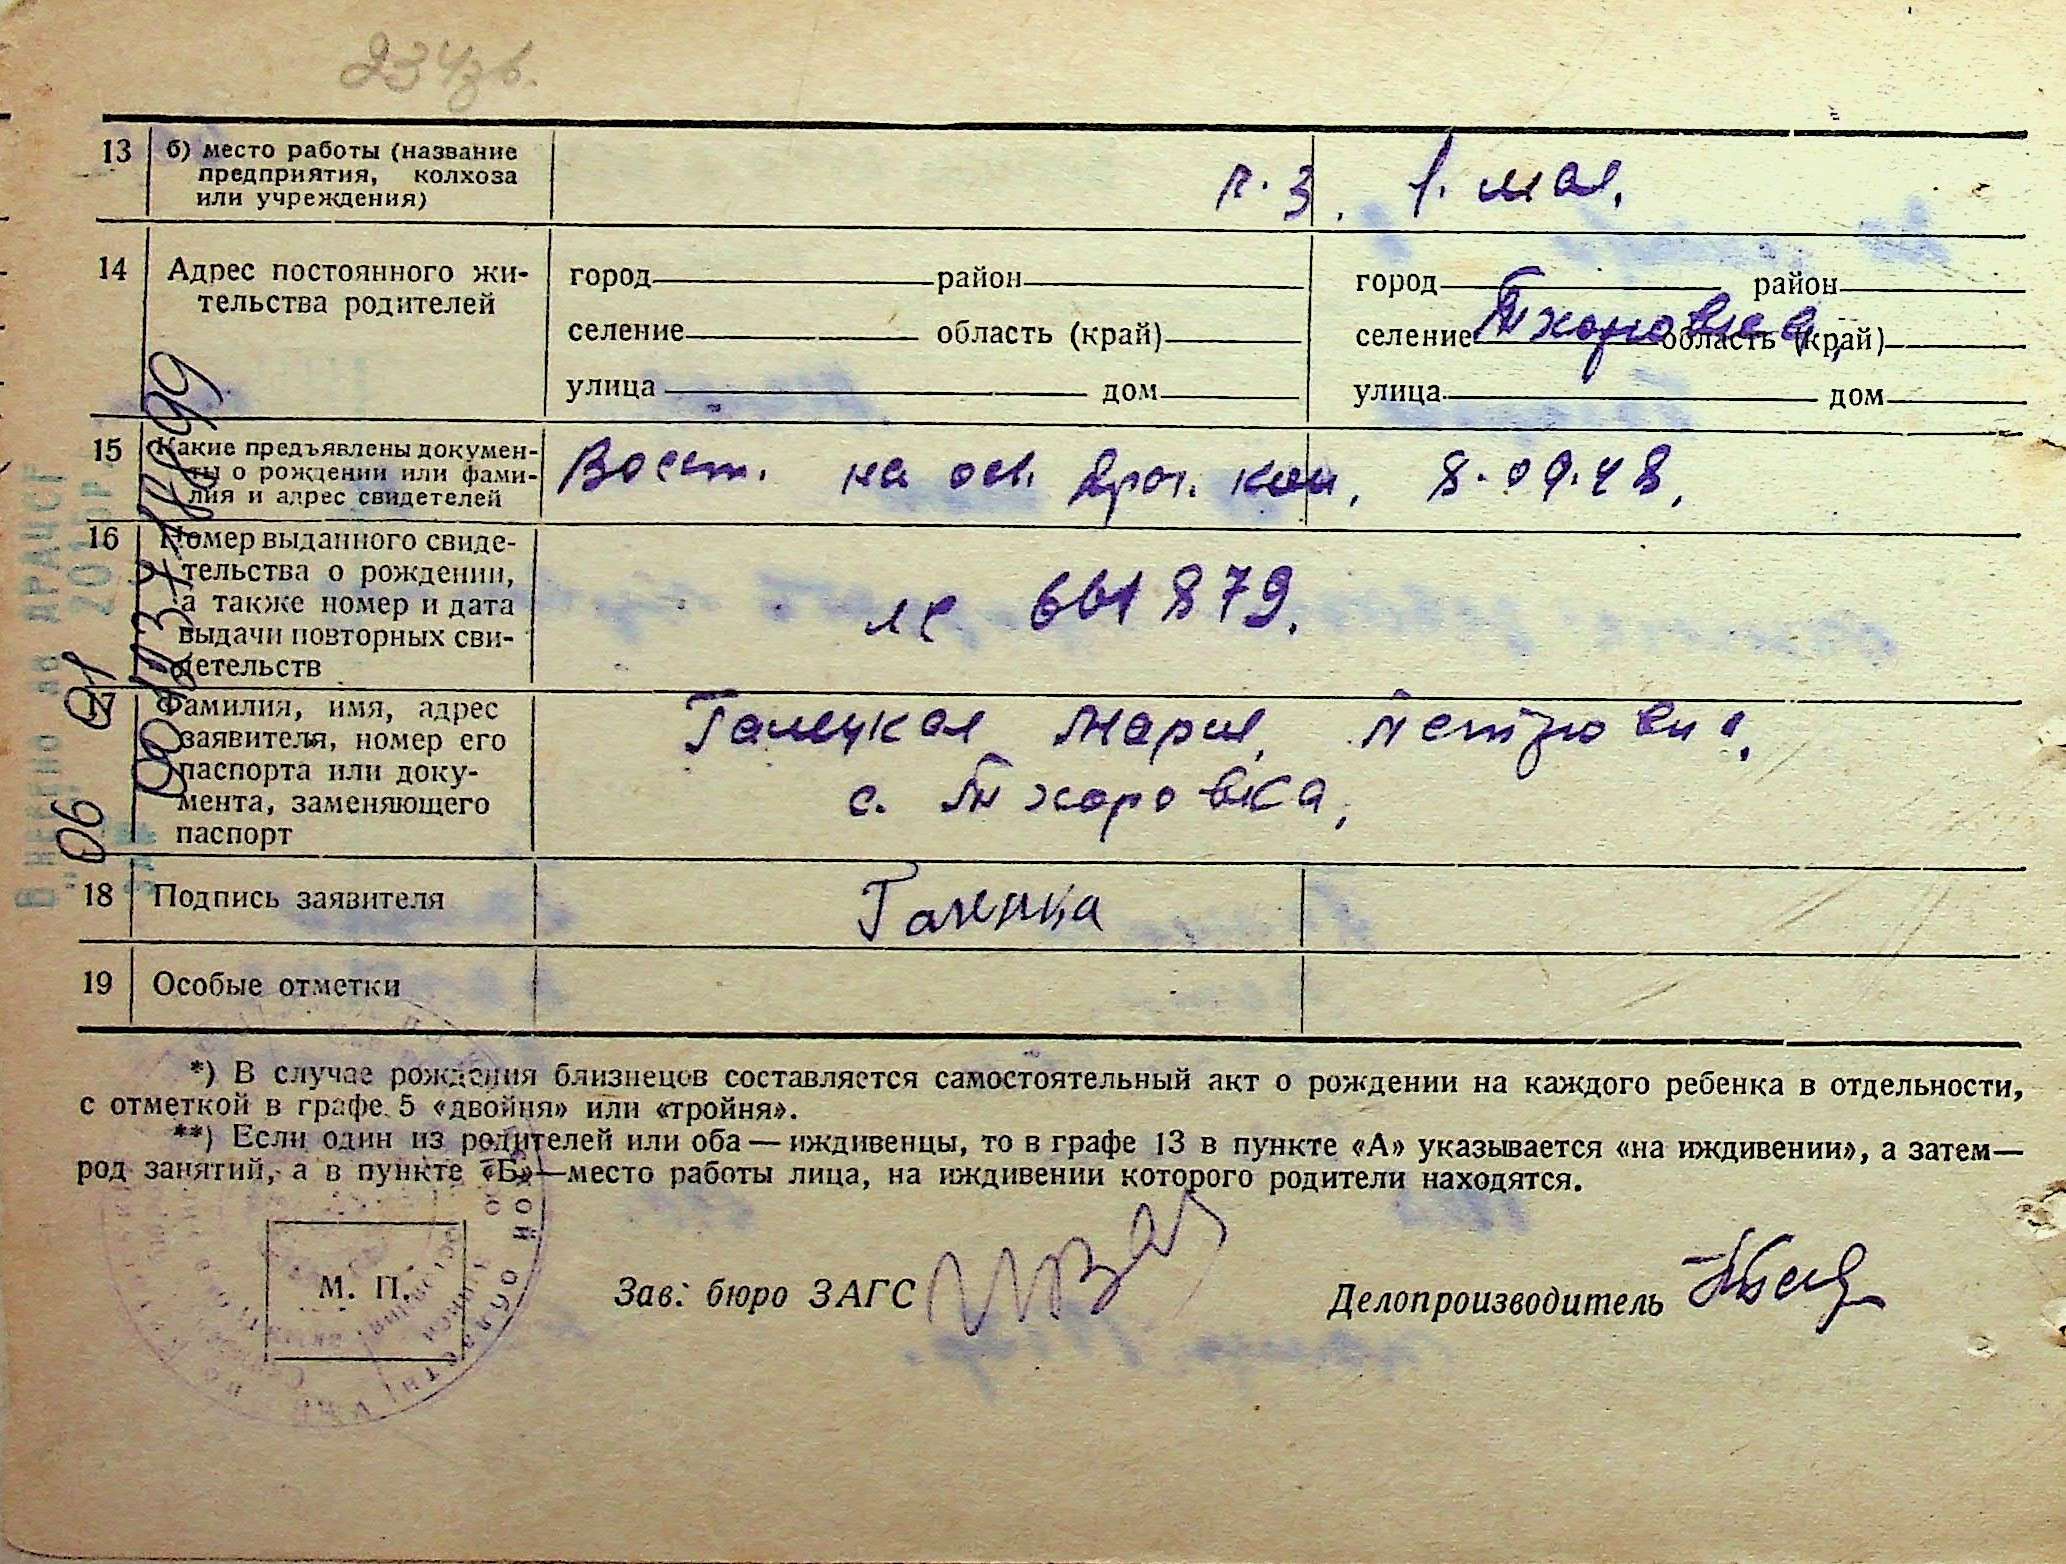 234зв.
13 б) место работы (название
предприятия, колхоза
или учреждения)
к. з. 1. мая.
14 Адрес постоянного жи-
тельства родителей
город район
селение область (край)
улица дом
город район
селение Тхоровка, область (край)
улица дом
15 Какие предъявлены докумен-
ты о рождении или фами-
лия и адрес свидетелей
Восст. на осн. прот. ком. 8.09.48.
16 Номер выданного свиде-
тельства о рождении,
а также номер и дата
выдачи повторных сви-
детельств
661879.
17 Фамилия, имя, адрес
заявителя, номер его
паспорта или доку-
мента, заменяющего
паспорт
Галецкая Мария Петровна.
с. Тхоровка,
18 Подпись заявителя
19 Особые отметки
*) В случае рождения близнецов составляется самостоятельный акт о рождении на каждого ребенка в отдельности,
с отметкой в графе 5 «двойня» или «тройня».
**) Если один из родителей или оба — иждивенцы, то в графе 13 в пункте «А» указывается «на иждивении», а затем—
род занятий, а в пункте «Б»—место работы лица, на иждивении которого родители находятся.
М. П.
Зав. бюро ЗАГС
Делопроизводитель